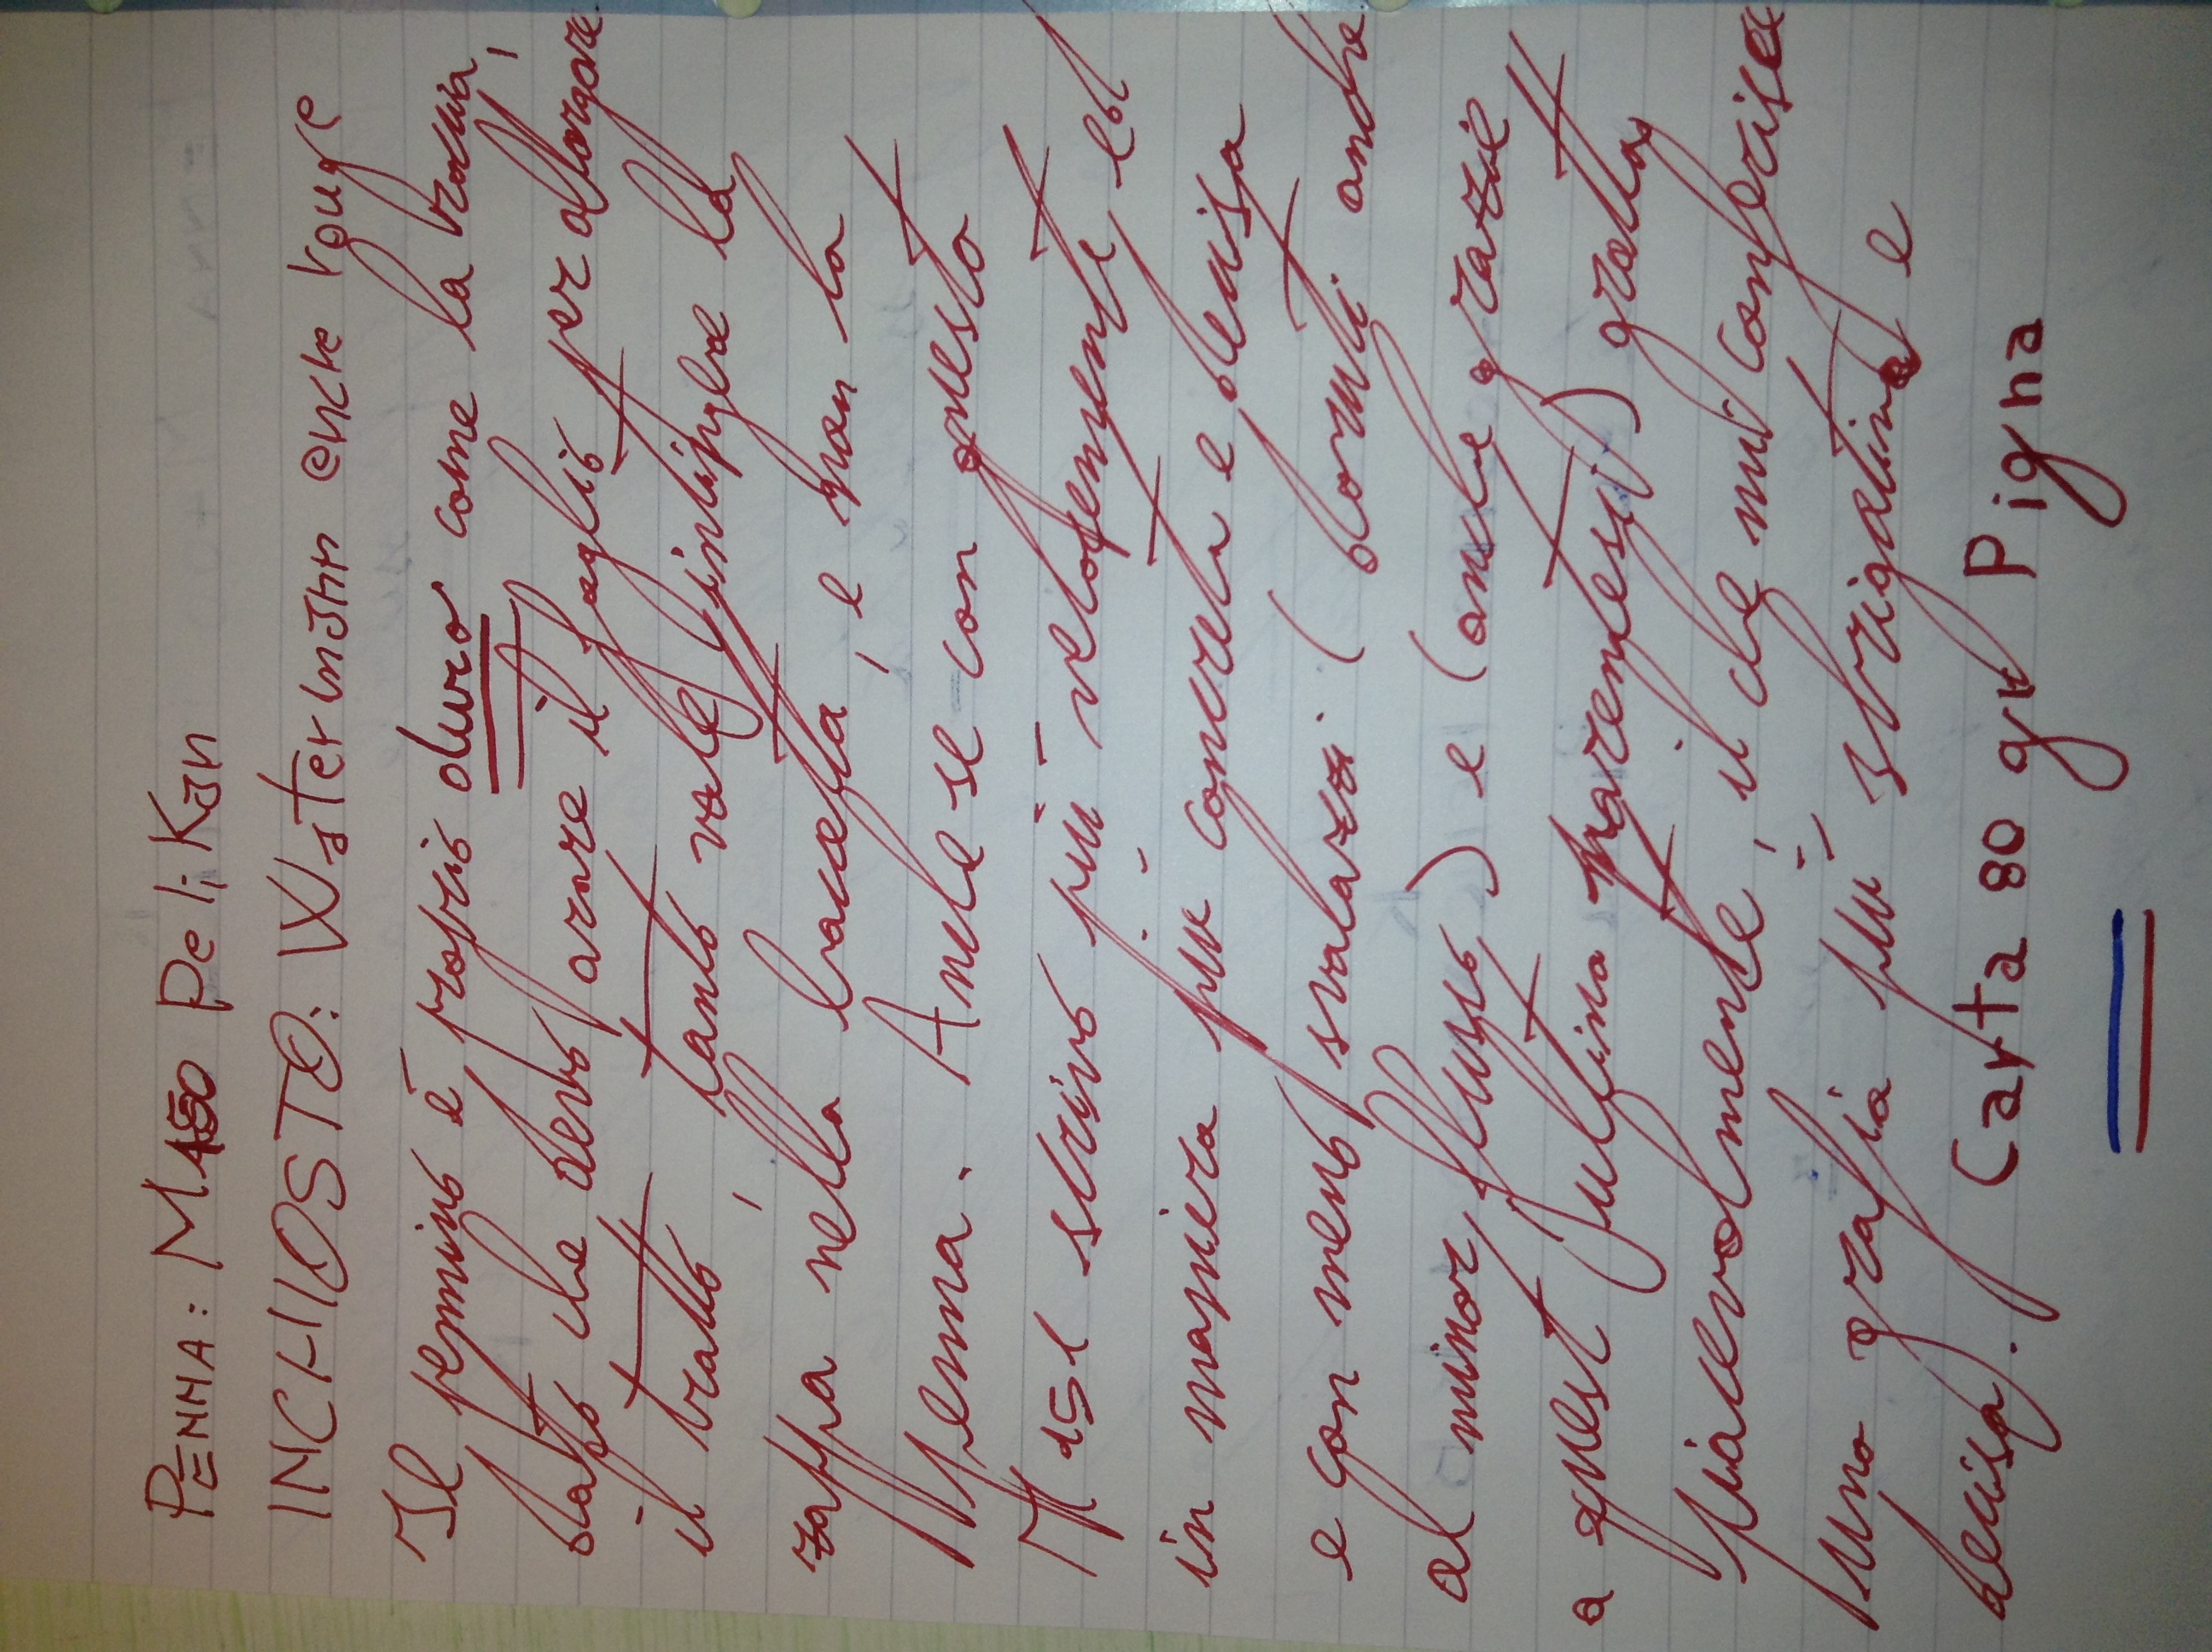 PENNA: M150 Pelikan
INCHIOSTO: Watermann encre rouge
Il pennino è proprio duro come la roccia,
dato che devo arare il foglio per allargare
il tratto, tanto vale intingere la
zappa nella boccetta, e non la
penna. Anche se con questo
M151 scrivo più velocemente ed
in maniera più concreta e decisa
e con meno svolazzi (dovuti anche
al minor flusso) e (anche grazie
a quest'ultima parentesi!) gratta
piacevolmente, il che mi conferisce
una grafia più sbrigativa e
decisa. Carta 80 gr Pigna